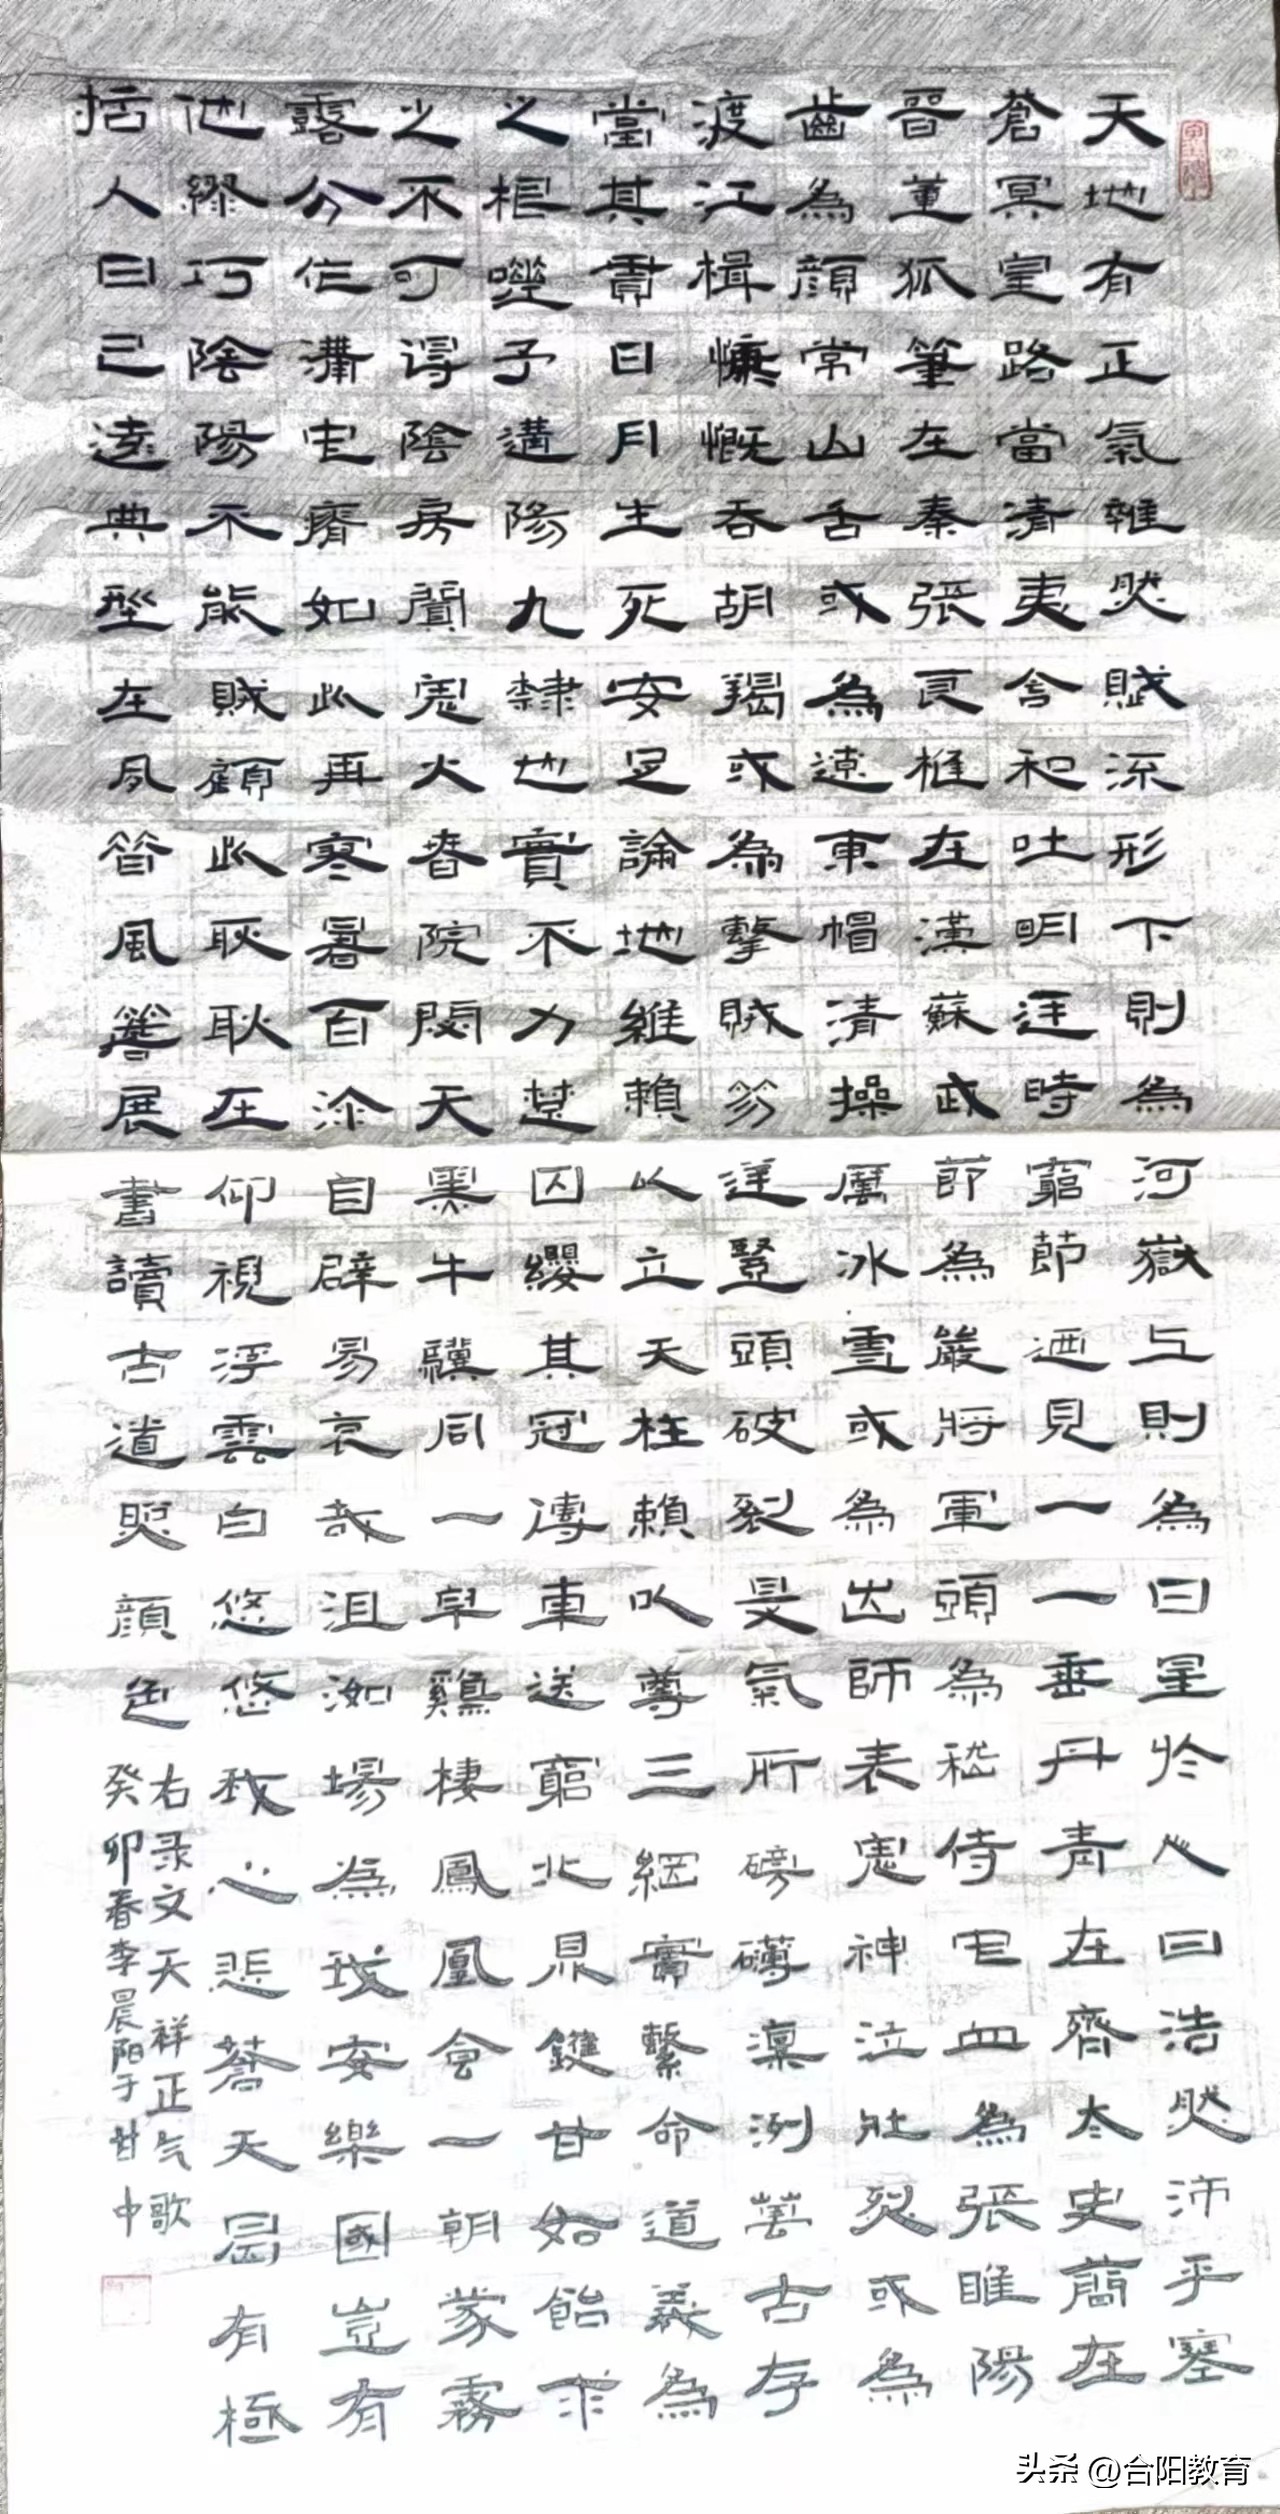 天地有正氣雜然賦流形下則為河嶽上則為日星於人曰浩然沛乎塞
蒼冥皇路當清夷含和吐明廷時窮節迺見一一垂丹青在齊太史簡在
晉董狐筆在秦張良椎在漢蘇武節為嚴將軍頭為嵇侍中血為張睢陽
齒為顏常山舌或為遼東帽清操厲冰雪或為出師表鬼神泣壯烈或為
渡江楫慷慨吞胡羯或為擊賊笏逆豎頭破裂是氣所磅礴凜冽萬古存
當其貫日月生死安足論地維賴以立天柱賴以尊三綱實繫命道義為
之根嗟予遘陽九隸也實不力楚囚纓其冠傳車送窮北鼎鑊甘如飴求
之不可得陰房闃鬼火春院閟天黑牛驥同一皁雞棲鳳凰食一朝蒙霧
露分作溝中瘠如此再寒暑百沴自辟易哀哉沮洳場為我安樂國豈有
他繆巧陰陽不能賊顧此耿耿在仰視浮雲白悠悠我心悲蒼天曷有極
哲人日已遠典型在夙昔風簷展書讀古道照顏色
右录文天祥正气歌
癸卯春李晨阳于甘中
头条 @合阳教育